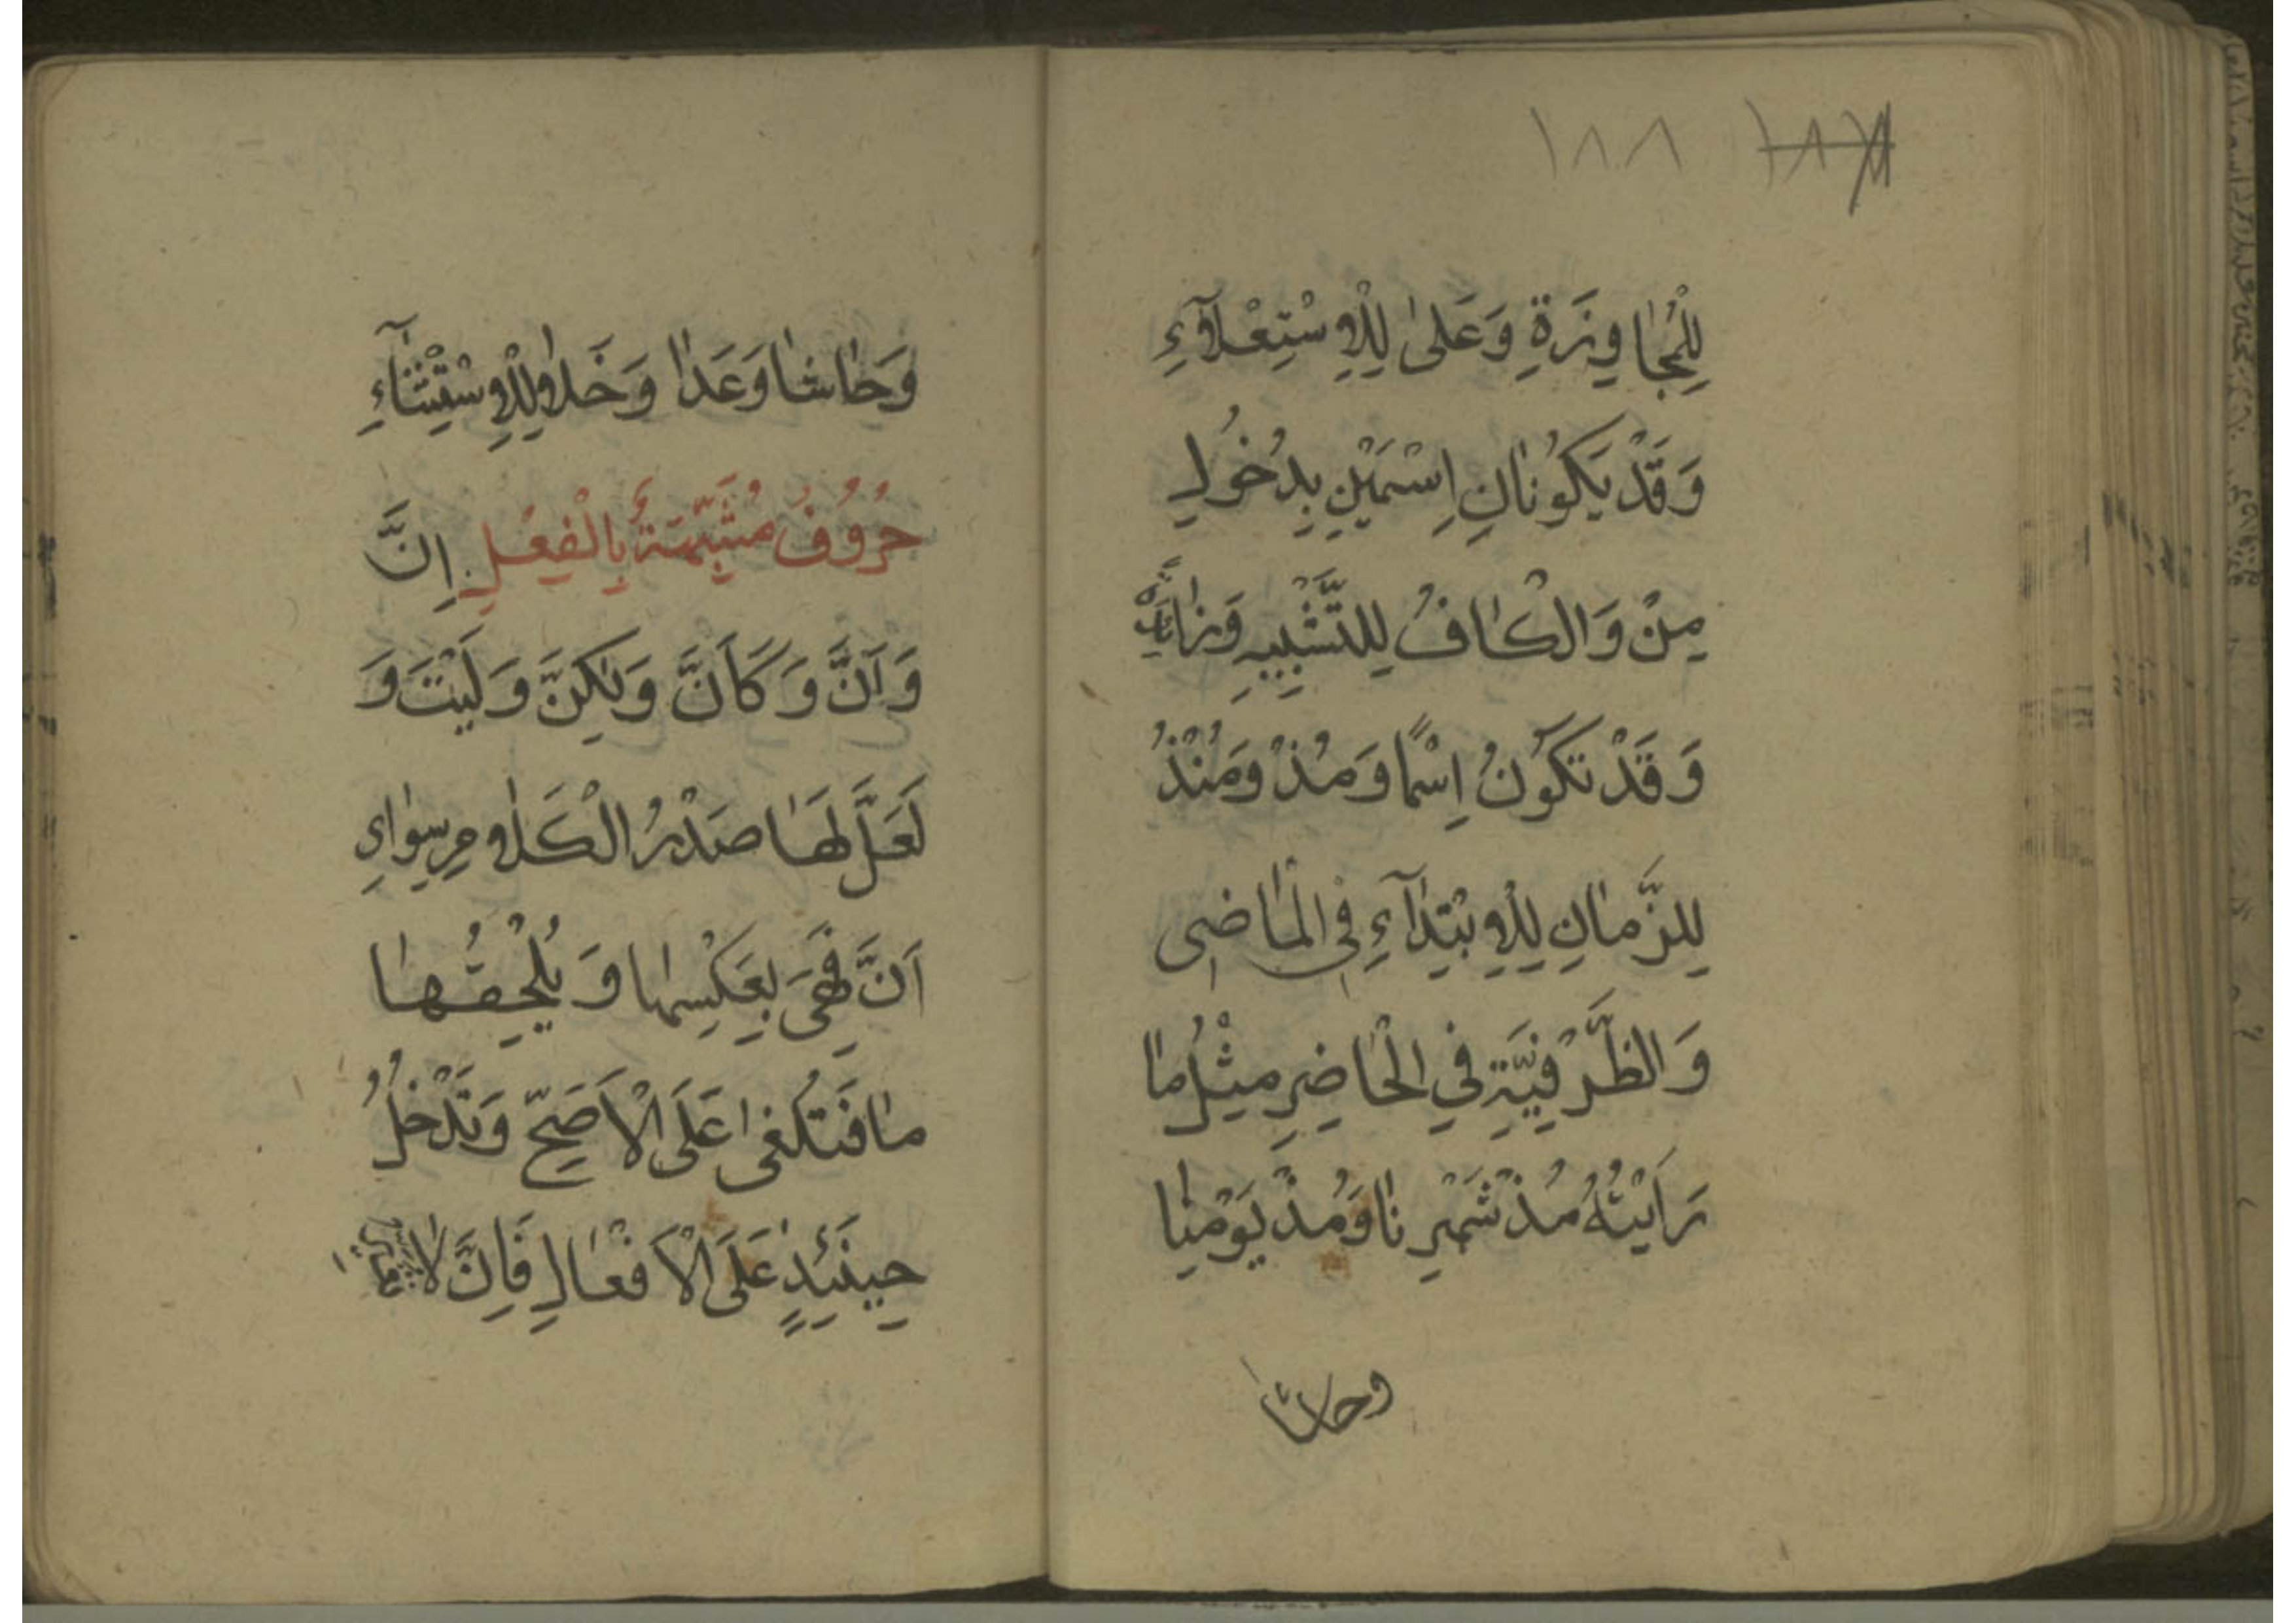 ١٨٨
لِلْمُجَاوِزَةِ وَعَلىٰ لِلْاِسْتِعْلَآءِ
وَقَدْ يَكُونَانِ اِسْمَيْنِ بِدُخُولِ
مِنْ وَالْكَافُ لِلتَّشْبِيهِ وَزَائِدَةٌ
وَقَدْ تَكُونُ اِسْمًا وَمُذْ وَمُنْذُ
لِلزَّمَانِ لِلْاِبْتِدَآءِ فِي الْمَاضِى
وَالظَّرْفِيَّةِ فِي الْحَاضِرِ مِثْلُ مَا
رَاَيْتُهُ مُذْ شَهْرِنَا وَمُذْ يَوْمِنَا
وحاشا
وَحَاشَا وَعَدَا وَخَلَا لِلْاِسْتِثْنَآءِ
حُرُوفُ مُشَبَّهَةُ بِالْفِعْلِ اِنَّ
وَاَنَّ وَكَاَنَّ وَلٰكِنَّ وَلَيْتَ وَ
لَعَلَّ لَهَا صَدْرُ الْكَلَامِ سِوَاءِ
اَنَّ فَهِىَ بِعَكْسِهَا وَيُلْحِقُهَا
مَا فَتُكْغٰى عَلَى الْاَصَحِّ وَتَدْخُلُ
حِينَئِذٍ عَلَى الْاَفْعَالِ فَاِنَّ لَا